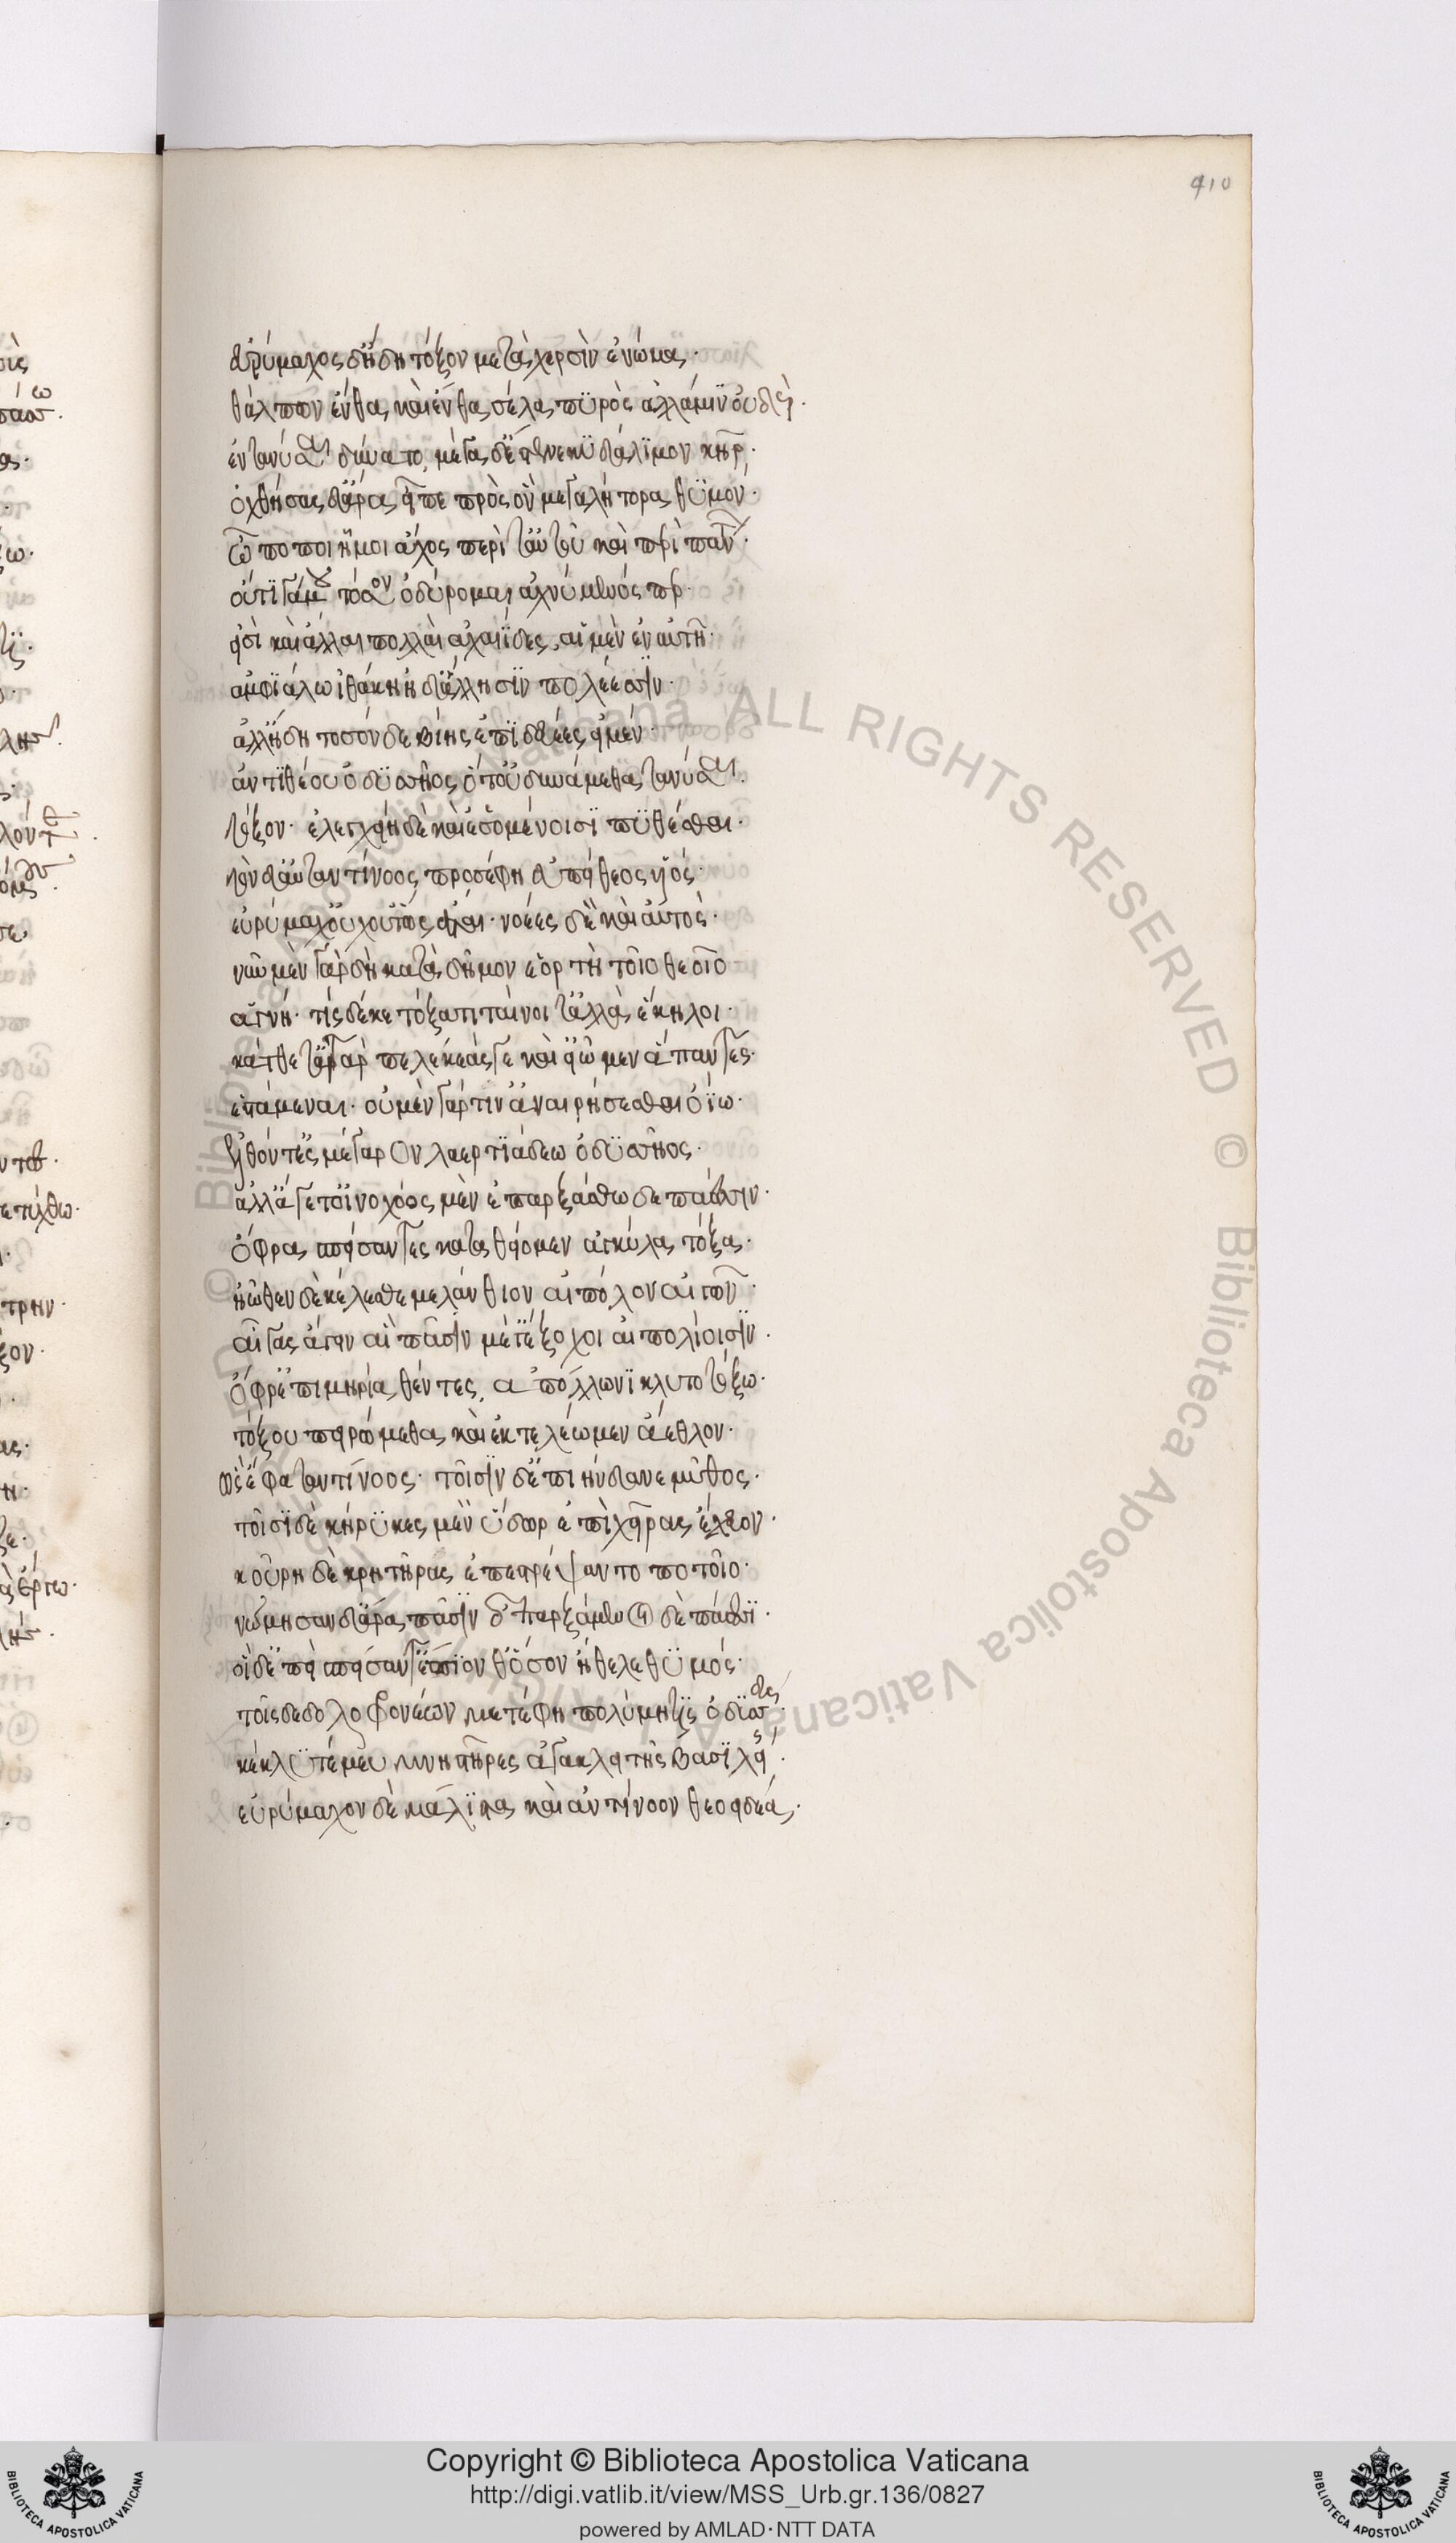 410
εὐρύμαχος δἤδη τόξον μετὰ χερσὶν ἐνώμα·
θάλπων ἔνθα καὶ ἔνθα σέλα πυρὸς ἀλλά μιν οὐδὲ·
ἐντανύσαι δύνατο, μέγα δἔστενε κυδάλιμον κῆρ·
ὀχθήσας δἄρα εἶπε πρὸς ὃν μεγαλήτορα θυμόν·
ὦ πόποι ἦ μοι ἄχος περί ταὐτοῦ καὶ περὶ πάντ·
οὔτι γάμου τόσσον ὀδύρομαι ἀχνύμενός περ·
εἰσὶ καὶ ἄλλαι πολλαὶ ἀχαιΐδες, αἱ μὲν ἐν αὐτῇ·
ἀμφιάλω ἰθάκη ἠδἄλλησιν πολίεσσιν·
ἀλλἢ δὴ τοσόνδε βίης ἐπιδευέες εἰμέν·
ἀντιθέου ὀδυσσῆος ὅτοὐ δυνάμεθα τανύσαι·
τόξον· ἐλεγχείη δὲ καὶ ἐσσομένοισι πυθέσθαι·
τὸν δαὖταντίνοος προσέφη εὐπείθεος υἱός·
εὐρύμαχοὐχοὕτως ἔσται· νοέεις δὲ καὶ αὐτός·
νῦν μὲν γὰρ δὴ κατὰ δῆμον ἑορτὴ τοῖο θεοῖο
ἁγνή· τίς δέκε τόξα τιταίνοιτἀλλὰ ἕκηλοι·
κάτθετἀτὰρ πελέκεάς γε καὶ εἰῶμεν ἅπαντες·
ἑστάμεναι· οὐ μὲν γάρ τινἀναιρήσεσθαι ὀΐω·
ἐλθόντἐς μέγαρον λαερτιάδεω ὀδυσσῆος·
ἀλλάγετοἰνοχόος μὲν ἐπαρξάσθω δεπάεσσιν·
ὄφρα σπείσαντες καταθείομεν ἀγκύλα τόξα·
ἠῶθεν δὲ κέλεσθε μελάνθιον αἰπόλον αἰγῶν·
αἶγας ἄγειν αἳ πᾶσιν μέγἔξοχοι αἰπολίοισιν·
ὄφρἐπι μηρία θέντες, ἀπόλλωνι κλυτοτόξω·
τόξου πειρώμεθα καὶ ἐκτελέωμεν ἄεθλον·
ὣς ἔφαταντίνοος· τοῖσιν δἐπιήνδανε μῦθος·
τοῖσι δὲ κήρυκες μὲν ὕδωρ ἐπὶ χεῖρας ἔχευον·
κοῦροι δὲ κρητῆρας ἐπεστέψαντο ποτοῖο·
νώμησαν δἄρα πᾶσιν ἐπαρξάμενοι δεπάεσσι·
οἱ δἐπεὶ σπείσαντἔπιόν θὅσον ἤθελε θυμός·
τοῖς δὲ δολοφρονέων μετέφη πολύμητις ὀδυσσεύς·
κέκλυτέ μευ μνηστῆρες ἀγακλειτῆς βασιλείης·
εὐρύμαχον δὲ μάλιστα καὶ ἀντίνοον θεοειδέα,·
Copyright © Biblioteca Apostolica Vaticana
http://digi.vatlib.it/view/MSS_Urb.gr.136/0827
powered by AMLAD·NTT DATA